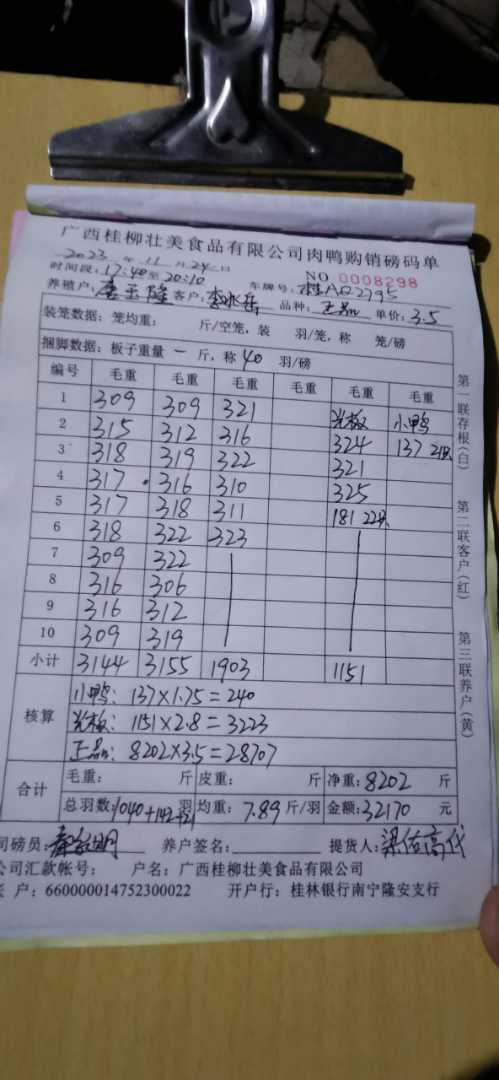 广西桂柳壮美食品有限公司肉鸭购销磅码单
2023 年 11 月 24 日 NO 0008298
时间段: 17:40 至 20:10 车牌号: 桂A02795
养殖户: 李玉隆 客户: 李水岳 品种: 正品 单价: 3.5
装笼数据: 笼均重: 斤/空笼, 装 羽/笼, 称 笼/磅
捆脚数据: 板子重量 一 斤, 称 40 羽/磅
编号 毛重 毛重 毛重 毛重 毛重 毛重
1 309 309 321 光板 小鸭
2 315 312 316 324 137 21只
3 318 319 322 321
4 317 316 310 325
5 317 318 311 181 22只
6 318 322 323
7 309 322
8 316 306
9 316 312
10 309 319
小计 3144 3155 1903 1151
核算
小鸭: 137×1.75=240
光板: 1151×2.8=3223
正品: 8202×3.5=28707
合计
毛重: 斤 皮重: 斤 净重: 8202 斤
总羽数: 1040+142+21 羽 均重: 7.89 斤/羽 金额: 32170 元
司磅员: 养户签名: 提货人:
公司汇款帐号: 户名: 广西桂柳壮美食品有限公司
户: 660000014752300022 开户行: 桂林银行南宁隆安支行
第一联存根(白)
第二联客户(红)
第三联养户(黄)